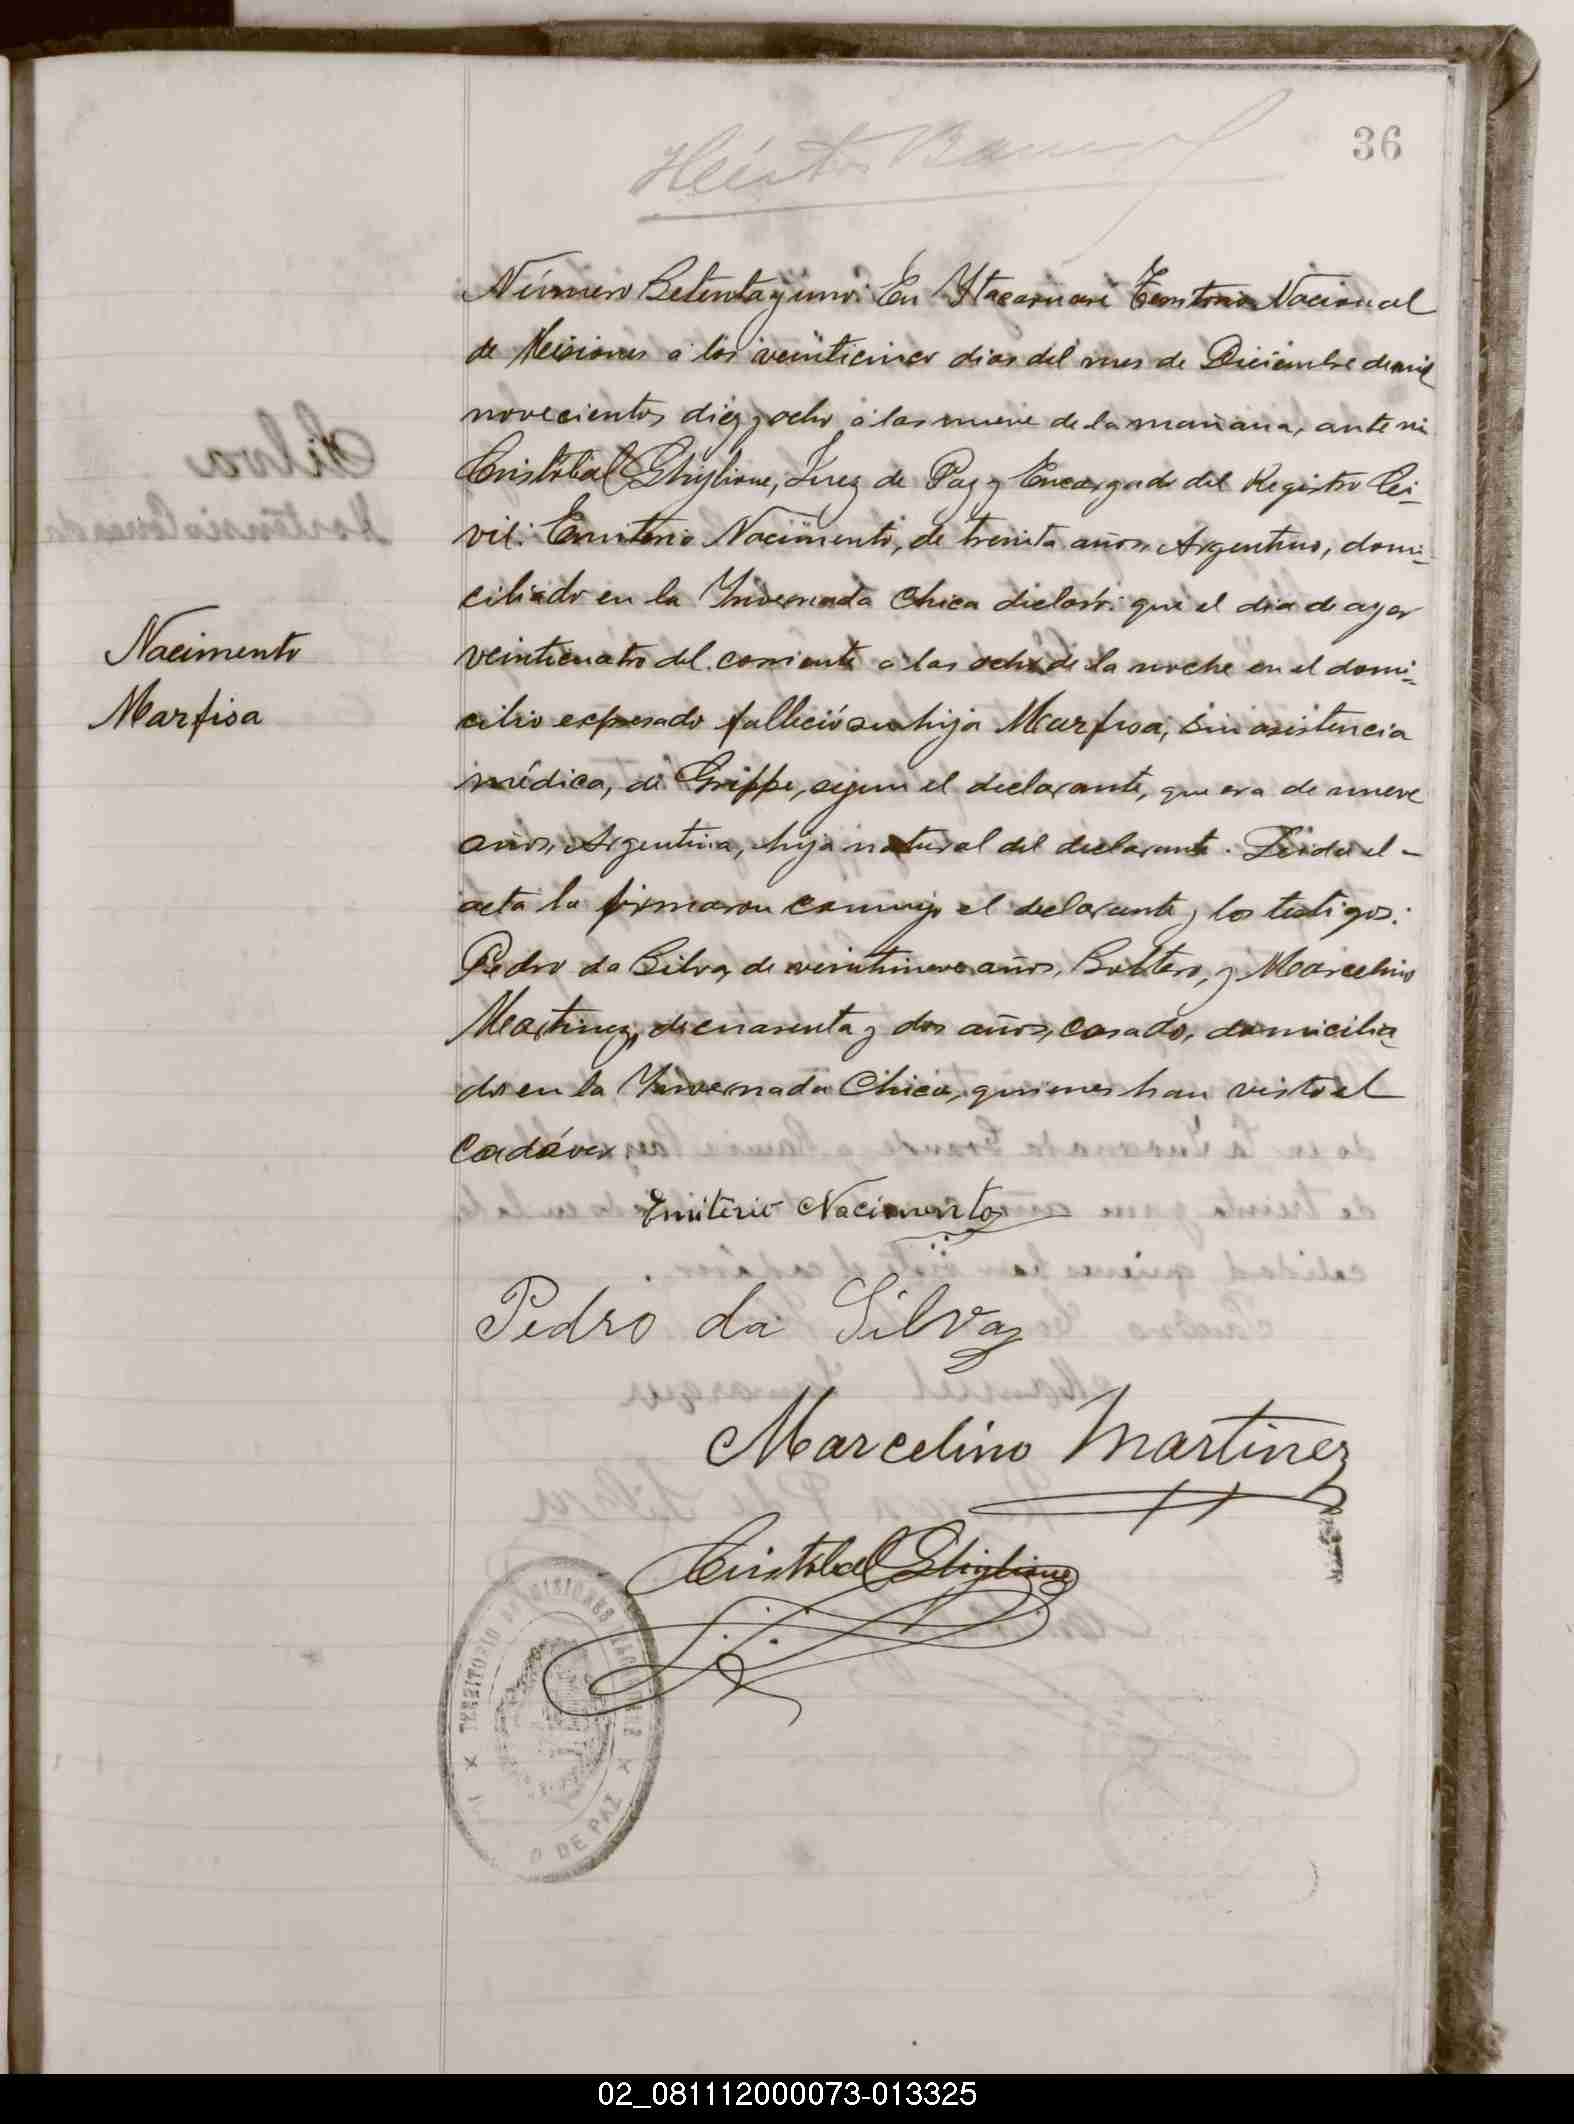 36
Número Setenta y uno: En Ytacaruaré Territorio Nacional
de Misiones á los veinticinco dias del mes de Diciembre de mil
novecientos diez y ocho, á las nueve de la mañana, ante mi
Cristobal Ghiglione, Juez de Paz y Encargado del Registro Ci-
vil: Emiterio Nacimento, de treinta años, Argentino, domi-
ciliado en la Ynvernada Chica declaró: que el dia de ayer
veinticuatro del corriente a las ocho de la noche en el domi-
Nacimento
Marfisa
cilio expresado falleció su hija Marfisa, sin asistencia
médica, de Grippe, segun el declarante, que era de nueve
años, Argentina, hija natural del declarante. Leida el -
acta la firmaron conmigo el declarante y los testigos:
Pedro da Silva, de veintinueve años, Soltero, y Marcelino
Martinez, de cuarenta y dos años, casado, domicilia-
dos en la Ynvernada Chica, quienes han visto el
cadáver
Emiterio Nacimento
Pedro da Silva
Marcelino Martinez
Cristobal Ghiglione
TERRITORIO DE MISIONES
DE PAZ
02_081112000073-013325